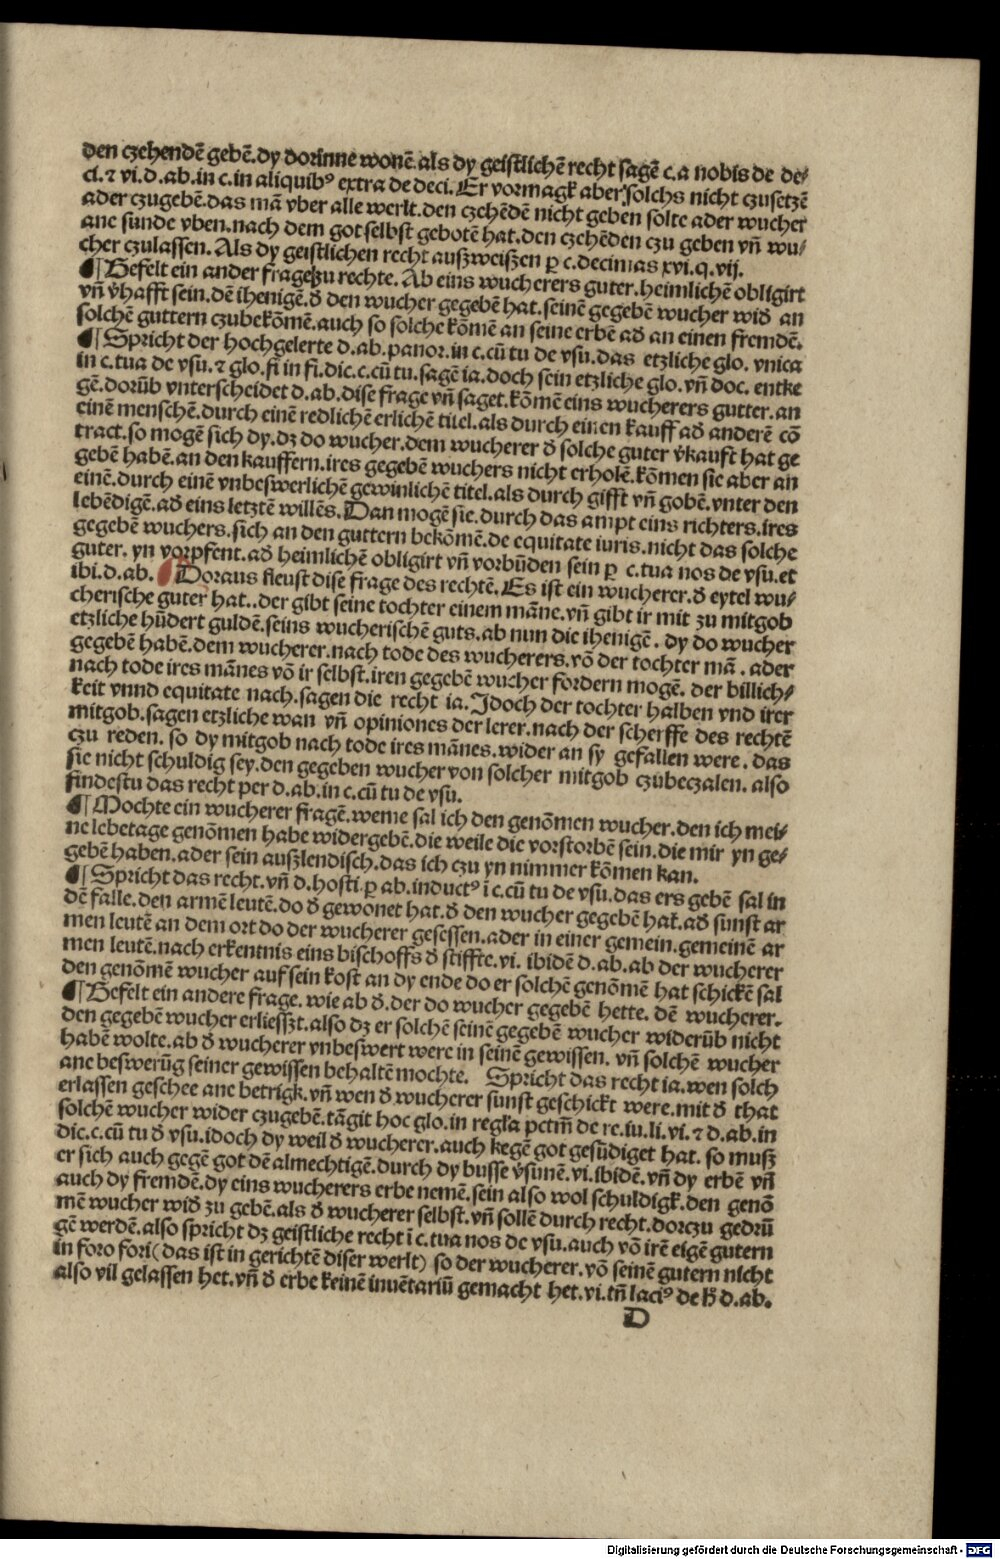 den czehendē gebē.dy dorinne wonē.als dy geistlichē recht sagē c.a nobis de de⸗
ci.⁊ vi.d.ab.in c.in aliquibꝰ extra de deci. Er vormagk aber solchs nicht czusetzē
ader czugebē.das mā vber alle werlt.den czehēdē nicht geben solte ader wucher
ane sunde vben.nach dem got selbst gebotē hat.den czehēden czu geben vñ wu⸗
cher czulassen. Als dy geistlichen recht außweißen ꝑ c.decimas xvi.q.vij.
¶ Befelt ein ander frageßzu rechte. Ab eins wucherers guter.heimlichē obligirt
vñ v̄hafft sein.dē ihenigē.đ den wucher gegebē hat.seinē gegebē wucher wiđ an
solchē guttern czubekōmē.auch so solche kōmē an seine erbē ađ an einen fremdē.
¶ Spricht der hochgelerte d.ab.panor.in c.cū tu de vsu.das etzliche glo. vnica
in c.tua de vsu.⁊ glo.fi in fi.dic.c.cū tu.sagē ia.doch sein etzliche glo. vñ doc. entke
gē.dorūb vnterscheidet d.ab.dise frage vñ saget.kōmē eins wucherers gutter.an
einē menschē.durch einē redlichē erlichē titel.als durch einen kauff ađ anderē cō
tract.so mogē sich dy.dz do wucher.dem wucherer đ solche guter v̄kauft hat ge
gebē habē.an den kauffern.ires gegebē wuchers nicht erholē.kōmen sie aber an
einē.durch einē vnbeswerlichē gewinlichē titel.als durch gifft vñ gobē.vnter den
lebēdigē.ađ eins letztē willēs.Dan mogē sie.durch das ampt eins richters.ires
gegebē wuchers.sich an den guttern bekōmē.de equitate iuris.nicht das solche
guter. yn vorpfent.ađ heimlichē obligirt vñ vorbūden sein ꝑ c.tua nos de vsu.et
ibi.d.ab. ¶ Doraus fleust dise frage des rechtē. Es ist ein wucherer.đ eytel wu⸗
cherische guter hat..der gibt seine tochter einem māne.vñ gibt ir mit zu mitgob
etzliche hūdert guldē.seins wucherischē guts.ab nun die ihenigē. dy do wucher
gegebē habē.dem wucherer.nach tode des wucherers.vō der tochter mā. ader
nach tode ires mānes vō ir selbst.iren gegebē wucher fordern mogē. der billich⸗
keit vnnd equitate nach.sagen die recht ia. Jdoch der tochter halben vnd irer
mitgob.sagen etzliche wan vñ opiniones der lerer.nach der scherffe des rechtē
czu reden. so dy mitgob nach tode ires mānes.wider an sy gefallen were. das
sie nicht schuldig sey.den gegeben wucher von solcher mitgob czūbeczalen. also
findestu das recht per d.ab.in c.cū tu de vsu.
¶ Mochte ein wucherer fragē.weme sal ich den genōmen wucher.den ich mei⸗
ne lebetage genōmen habe widergebē.die weile die vorstorbē sein.die mir yn ge⸗
gebē haben.ader sein außlendisch.das ich czu yn nimmer kōmen kan.
¶ Spricht das recht.vñ d.hosti.ꝑ ab.inductꝰ ī c.cū tu de vsu.das ers gebē sal in
dē falle.den armē leutē.do đ gewonet hat.đ den wucher gegebē hat.ađ sunst ar
men leutē an dem ort do der wucherer gesessen.ader in einer gemein.gemeinē ar
men leutē.nach erkentnis eins bischoffs đ stiffte.vi. ibidē d.ab.ab der wucherer
den genōmē wucher auf sein kost an dy ende do er solchē genōmē hat schickē sal
¶ Befelt ein andere frage. wie ab đ.der do wucher gegebē hette. dē wucherer.
den gegebē wucher erliesszt.also dz er solchē seinē gegebē wucher widerūb nicht
habē wolte.ab đ wucherer vnbeswert were in seinē gewissen. vñ solchē wucher
ane beswerūg seiner gewissen behaltē mochte. Spricht das recht ia.wen solch
erlassen geschee ane betrigk.vñ wen đ wucherer sunst geschickt were.mit đ that
solchē wucher wider czugebē.tāgit hoc glo.in regl'a pctm̄ de re.iu.li.vi.⁊ d.ab.in
dic.c.cū tu đ vsu.idoch dy weil đ wucherer.auch kegē got gesūdiget hat. so muß
er sich auch gegē got dē almechtigē.durch dy busse v̄sunē.vi.ibidē.vñ dy erbē vñ
auch dy fremdē.dy eins wucherers erbe nemē.sein also wol schuldigk.den genō
mē wucher wiđ zu gebē.als đ wucherer selbst.vñ sollē durch recht.dorczu gedrū
gē werdē.also spricht dz geistliche recht ī c.tua nos de vsu.auch vō irē eigē gutern
in foro fori(das ist in gerichtē diser werlt) so der wucherer.vō seinē gutern nicht
also vil gelassen het.vñ đ erbe keinē inuētariū gemacht het.vi.tñ laciꝰ de d.ab.
D
Digitalisierung gefördert durch die Deutsche Forschungsgemeinschaft - DFG